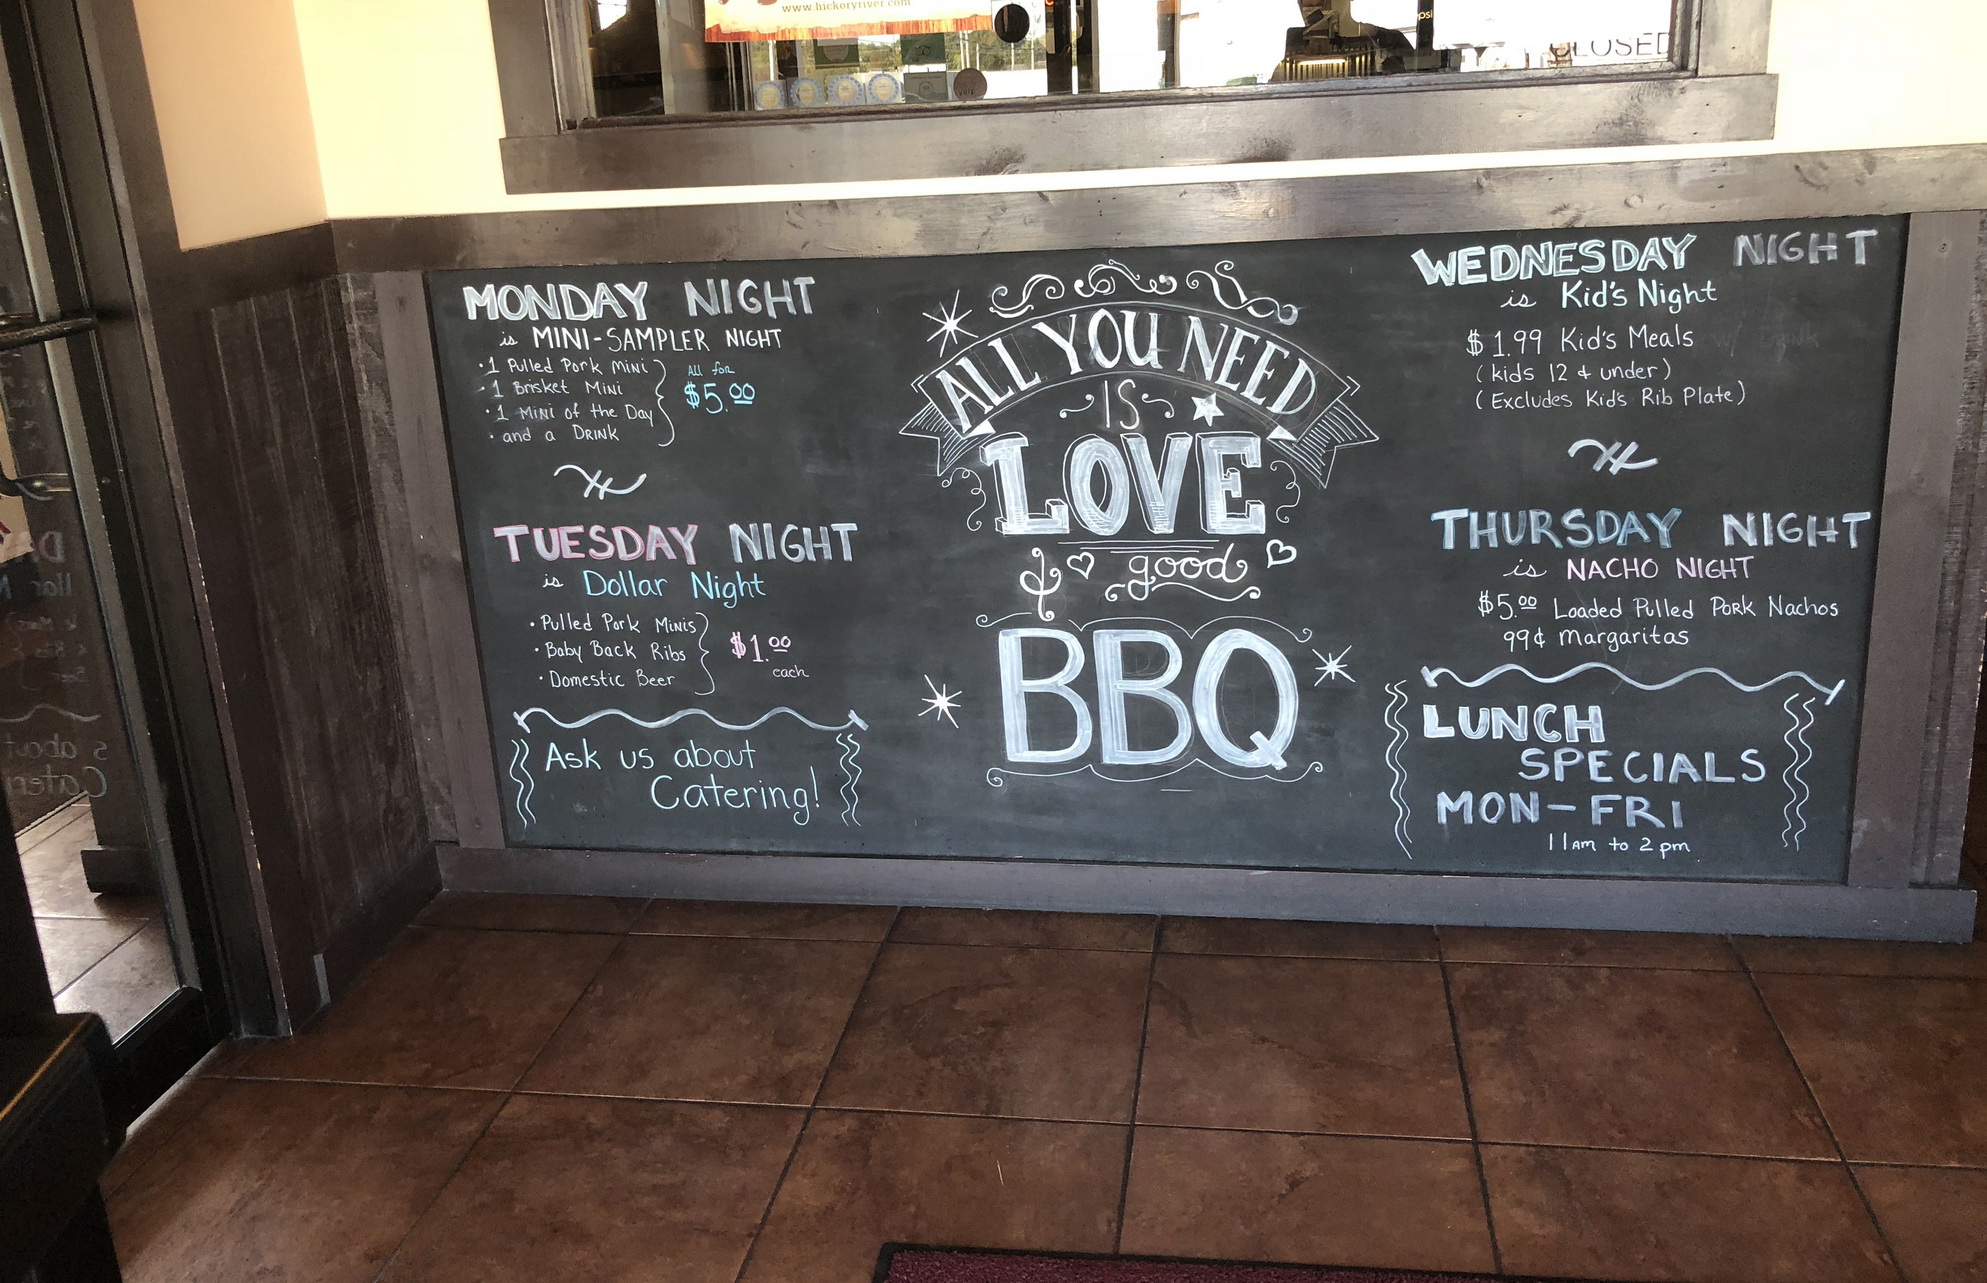 www.hickoryriver.com
yelp
CLOSED
MONDAY NIGHT
is MINI-SAMPLER NIGHT
• 1 Pulled Pork Mini
• 1 Brisket Mini
• 1 Mini of the Day
• and a Drink
All for
$5.00
TUESDAY NIGHT
is Dollar Night
• Pulled Pork Minis
• Baby Back Ribs
• Domestic Beer
$1.00
each
Ask us about
Catering!
ALL YOU NEED
IS
LOVE
& good
BBQ
WEDNESDAY NIGHT
is Kid's Night
$1.99 Kid's Meals w/ Drink
(kids 12 & under)
(Excludes Kid's Rib Plate)
THURSDAY NIGHT
is NACHO NIGHT
$5.00 Loaded Pulled Pork Nachos
99¢ Margaritas
LUNCH
SPECIALS
MON-FRI
11am to 2pm